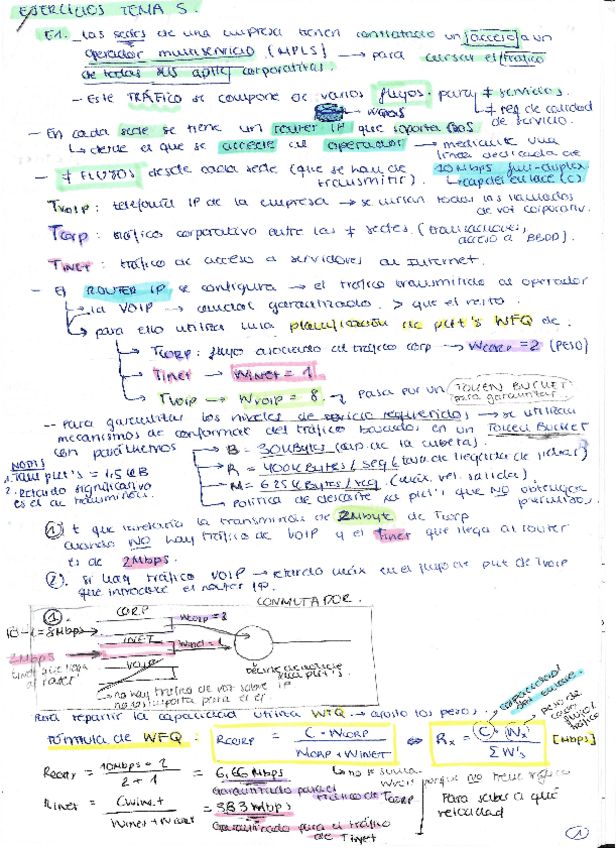 EJERCICIOS TEMA 5.
E1. Las sedes de una empresa tienen contratado un acceso a un
operador multiservicio (MPLS) → para cursar el tráfico
de todas sus aplic corporativas.
- Este TRÁFICO se compone de varios flujos. para ≠ servicios.
≠ req de calidad
de servicio.
- En cada sede se tiene un router IP que soporta QoS
desde el que se accede al operador → mediante una
línea dedicada de
10Mbps full-duplex
cap del enlace (C)
- ≠ FLUJOS desde cada sede (que se han de
transmitir).
TVOIP: telefonía IP de la empresa → se cursan todas las llamadas
de voz corporativ.
TCORP: tráfico corporativo entre las ≠ sedes. (transacciones,
acceso a BBDD).
TINET: tráfico de acceso a servidores al Internet.
- El ROUTER IP se configura → el tráfico transmitido al operador
la VOIP → caudal garantizado. > que el resto.
para ello utiliza una planificación de pkt's WFQ de:
TCORP: flujo asociado al tráfico corp → WCORP = 2 (PESO)
TINET → WINET = 1
TVOIP → WVOIP = 8. pasa por un TOKEN BUCKET
para garantizar
-- Para garantizar los niveles de servicio requeridos → se utilizan
mecanismos de conformar del tráfico basados en un TOKEN BUCKET
con parámetros
B = 30KBytes (cap. de la cubeta).
R = 400KBytes/seg (tasa de llegada de fichas)
M = 625KBytes/seg. (máx. vel. salida).
Política de descarte para pkt's que NO obtengan
permisos.
NOTAS
1. Tam pkt's = 1,5 KB
2. Retardo significativo
es el de transmisión.
1) t que tardaría la transmisión de 2Mbyte de TCORP
cuando NO hay tráfico de VOIP y el Tinet que llega al router
es de 2Mbps.
2). Si hay tráfico VOIP → retardo máx en el flujo de pkt de TVOIP
que introduce el router IP.
CONMUTADOR.
1.
CORP
WCORP = 8
10-2=8Mbps
INET
WINET = 1
2Mbps
VOIP
no hay tráfico de voz sobre IP
Para repartir la capacidad utiliza WFQ → ajusto los pesos.
capacidad
del enlace.
peso de
cada
flujo/
tráfico
Fórmula de WFQ: RCORP = C · WCORP / WCORP + WINET ⇔ Rx = C · Wx / ΣW's [Mbps]
RCORP = 10Mbps · 2 / 2 + 1 = 6,66 Mbps
no se suma
WVOIP porque no tiene tráfico
Garantizado para el
tráfico de TCORP
Para saber a qué
velocidad
RINET = C·WINET / WINET + WCORP = 3,33 Mbps
Garantizado para el tráfico
de Tinet
1